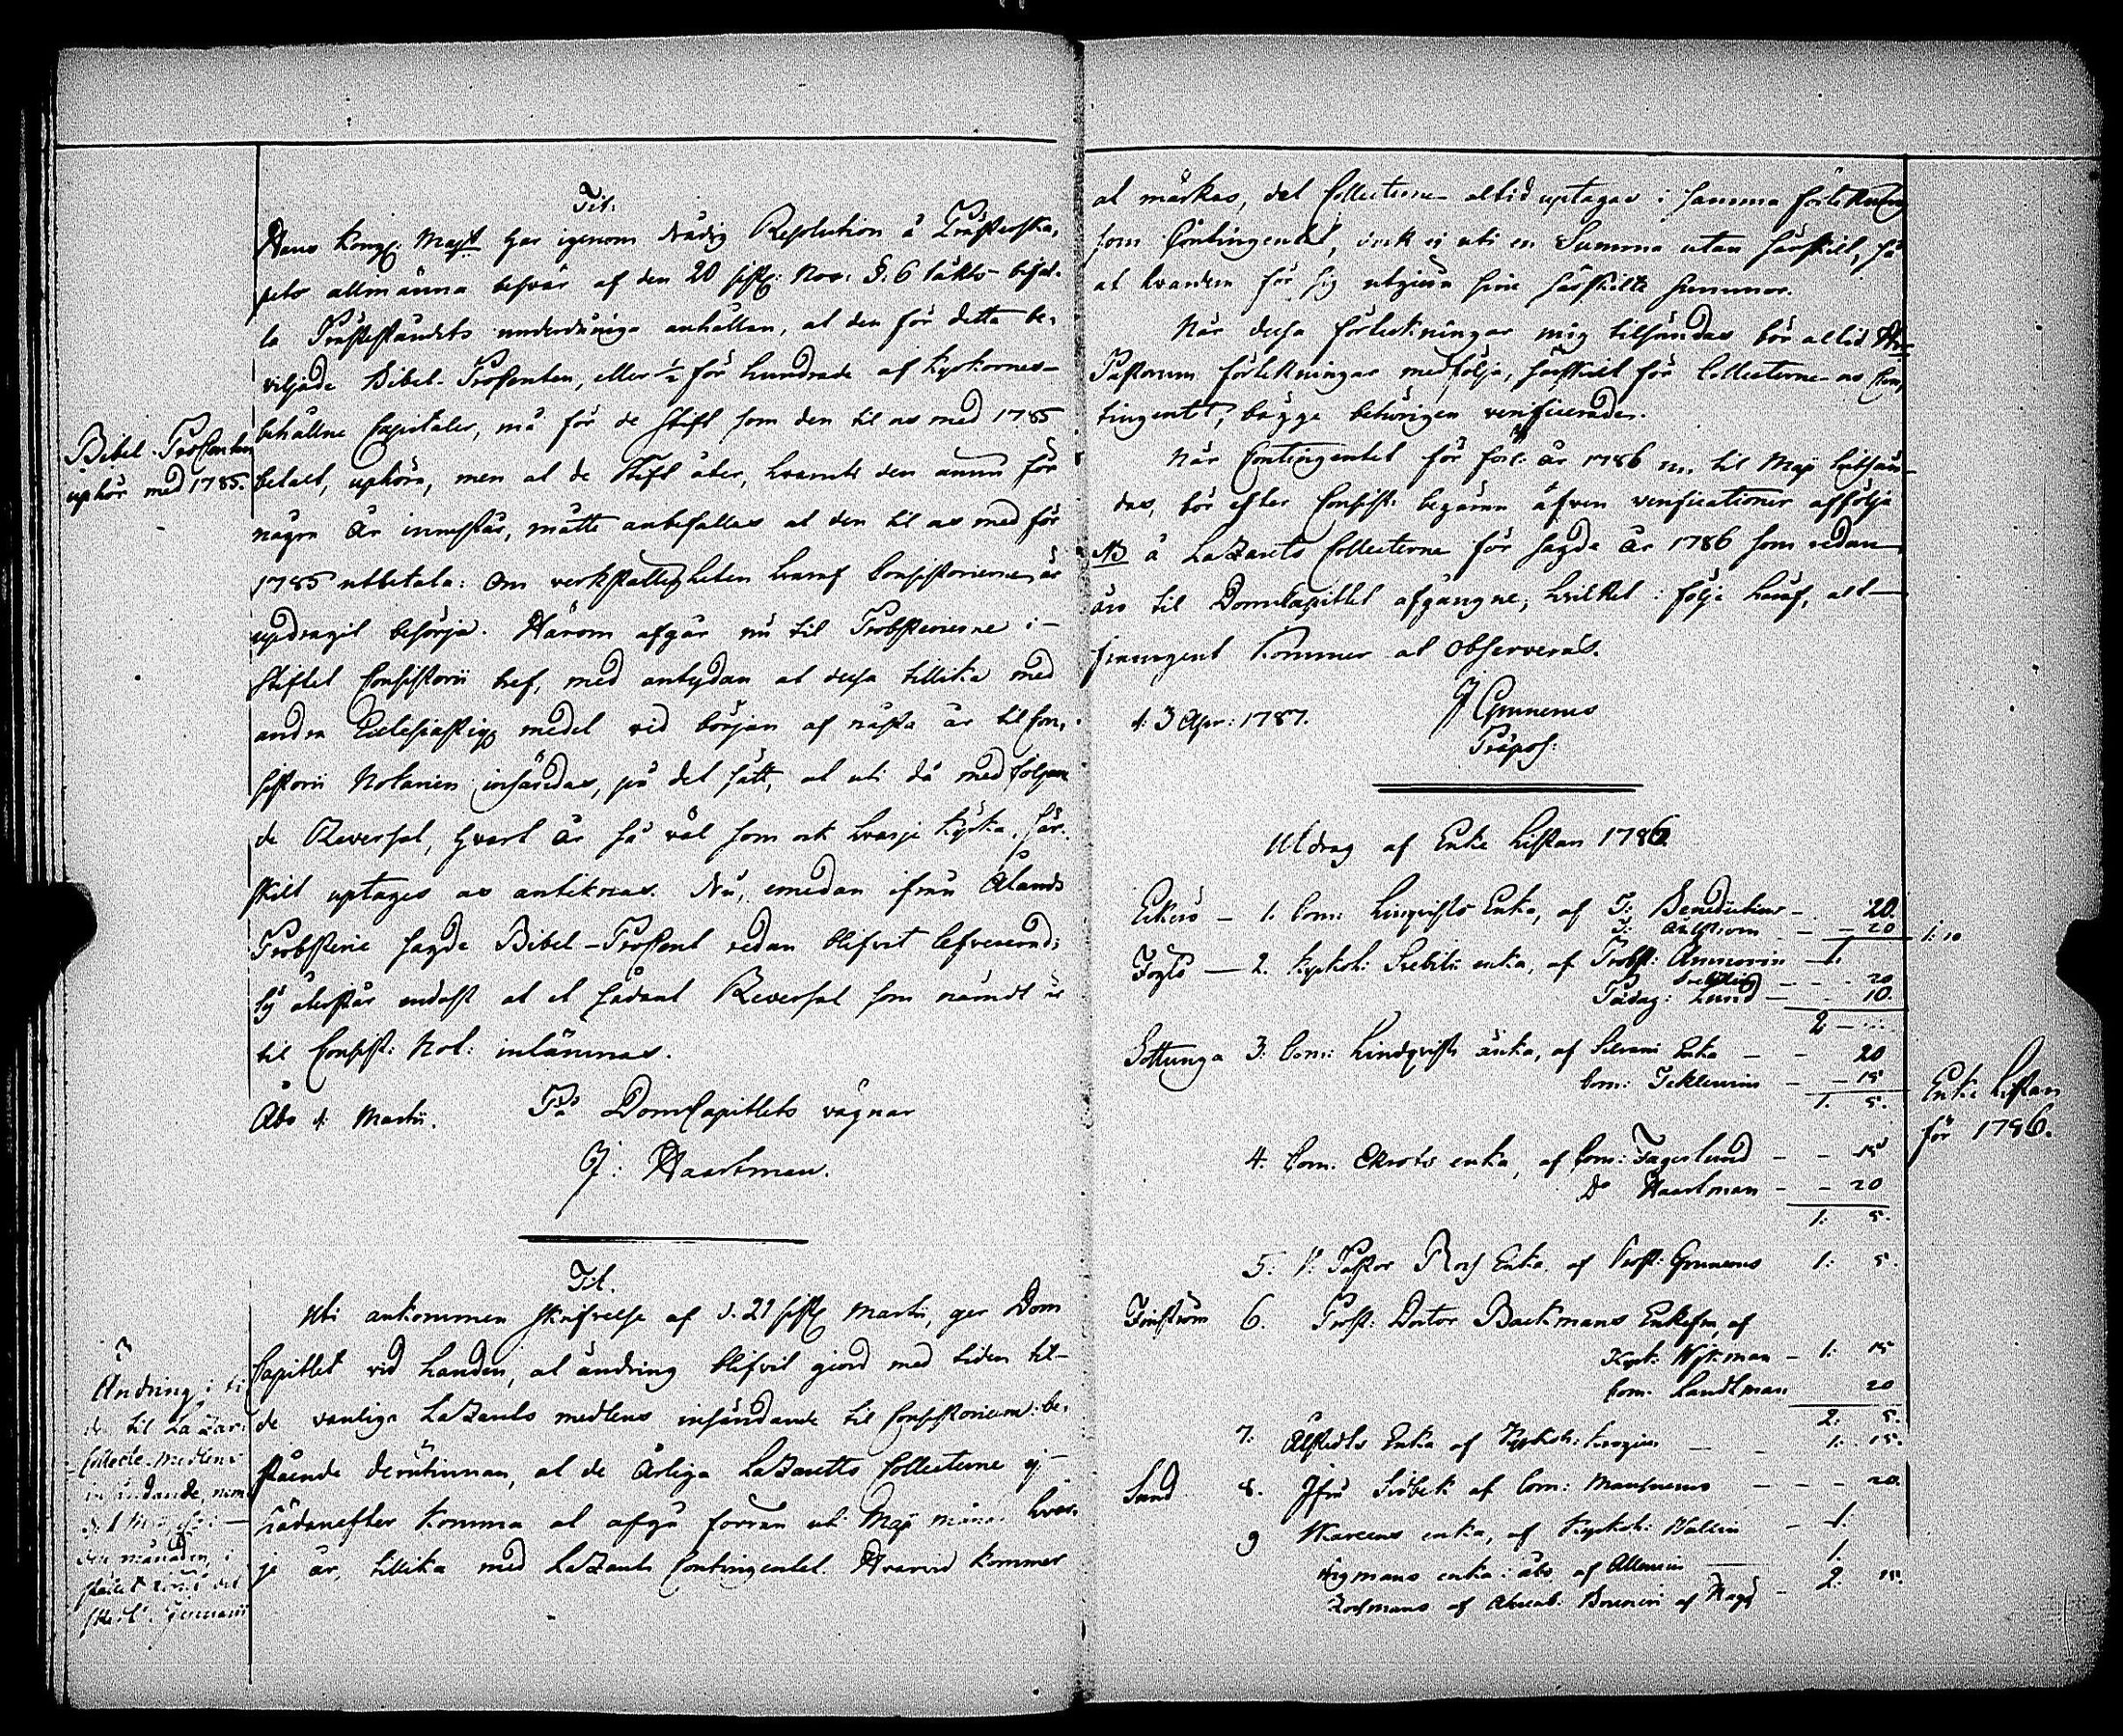 Tit:
Hans Kongl: Majt har igenom Nådig Resolution å Prästerska-
pets allmänna besvär af den 20 sistl: Nov: §. 6 täkts bifal-
la Prästeståndets underdåniga anhållan, at den för detta be-
viljade Bibel-Procenten, eller ½ för hundrade af Kyrkornes
behållne Capitaler, må för de Stift som den til os med 1785
betalt, uphöra, men at de Stift åter, hvarest den ännu för
några År innestår, måtte anbefallas at den til os med för
1785 utbetala: Om verkställigheten hvaraf Consistorierne är
updragit besörja. Härom afgår nu til Probsterierne i
Stiftet Consistorii bref, med antydan at dessa tillika med
andra Ecclesiastique medel vid början af nästa år til Con-
sistorii Notarien insändas, på det sätt, at uti då medföljan-
de Reversal, hvart År så väl som ock hvarje Kyrka, sär-
skilt uptages os anteknas. Nu, emedan ifrån Ålands
Probsterie sagde Bibel-Procent redan blifvit lefvererad;
så återstår endast at et sådant Reversal som nämdt är
til Consist: Not: inlämnas.
Åbo d: Martii. På DomCapitlets vägnar
J: Haartman.
Bibel-Procenten
uphör med 1785.
Tit.
Uti ankommen skrifvelse af d. 21 sistl: Martii, ger Dom
Capitlet vid handen, at ändring blifvit giord med tiden til
de vanliga Lazarets medlens insändande til Consistorium: be-
stående derutinnan, at de Årliga Lazaretts Collecterne ej
hädanefter komma at afgå förran uti Maji månad hvar-
je år, tillika med Lazarets Contingentet. Hvarvid kommer
Ändring i ti
den til Lazar:
Collecte-Medlens
insändande,
månaden, i
stället
at märkas, det Collecterne altid uptagas i samma förtekning
som Contingentet, dock ej uti en Summa utan särskilt, så
at hvardera för sig utgiöra sine särskilte summor.
När dessa förtekningar mig tilsändas bör altid Hr
Pastorum förtekningar medfölja, särskilt för Collecterne os Con-
tingentet, bägge behörigen verificerade.
När Contingentet för förl: År 1786 nu til Maji hitsän-
das, bör efter Consist: begäran äfven verificationer åfölja
NB å Lazarets Collecterne för sagde År 1786 som redan
äro til DomCapitlet afgångne; hvilket i följe häraf, alt
framgent kommer at observeras.
d: 3 Apr: 1787. J Grunerus
Präpos:
Utdrag af Enke Listan 1786
Eckerö – 1. Com: Linqvists Enka, af P: Benedictius – 20.
– – 20 1: 10
Föglö – 2. Kyrkoh: Srebilii enka, af Probst: Ammorin – 1.
– – 20
Pädag: Lund – 10.
2 –
Sottunga 3. Com: Lindqvists änka, af Silvani Enka – – 20
Com: Teklenius – – 15
1. 5.
4. Com. Ekrots enka, af Com: Fagerlund – – 15
Do Haartman – – 20
1: 5.
5. V: Pastor Ross Enka, af Prost: Grunerus 1: 5.
Finström 6. Prost: Doctor Backmans Enkefru, af
Kyrk: Wikman – 1: 15
Com: Sandtman 20
2. 5.
7. Alstedts Enka af Kyrkoh: Krogius – – 1: 15.
Sund 8. Jfru Siöbek af Com: Mansnerus – – – 20.
9 Kareens enka, af Kyrkoh: Wallin – 1.
Wigmans enka i Åbo af Allenius 1.
2. 15.
Enke Listan
för 1786.